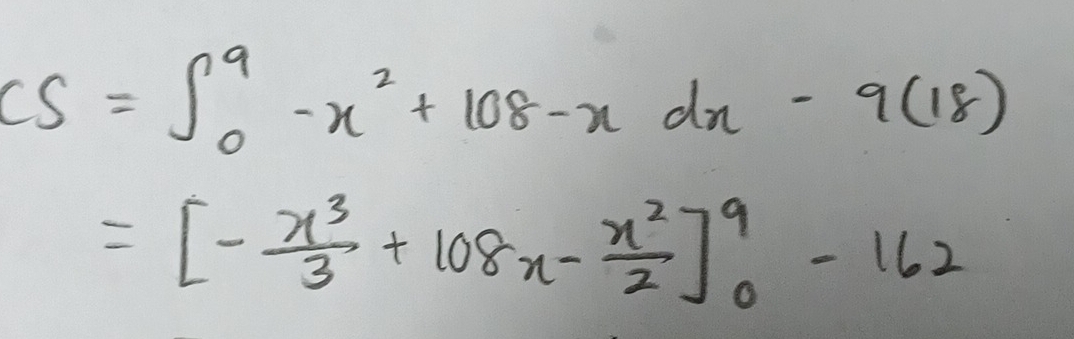 CS = ∫₀⁹ -x² + 108 - x dx - 9(18)
= [-x³/3 + 108x - x²/2]₀⁹ - 162